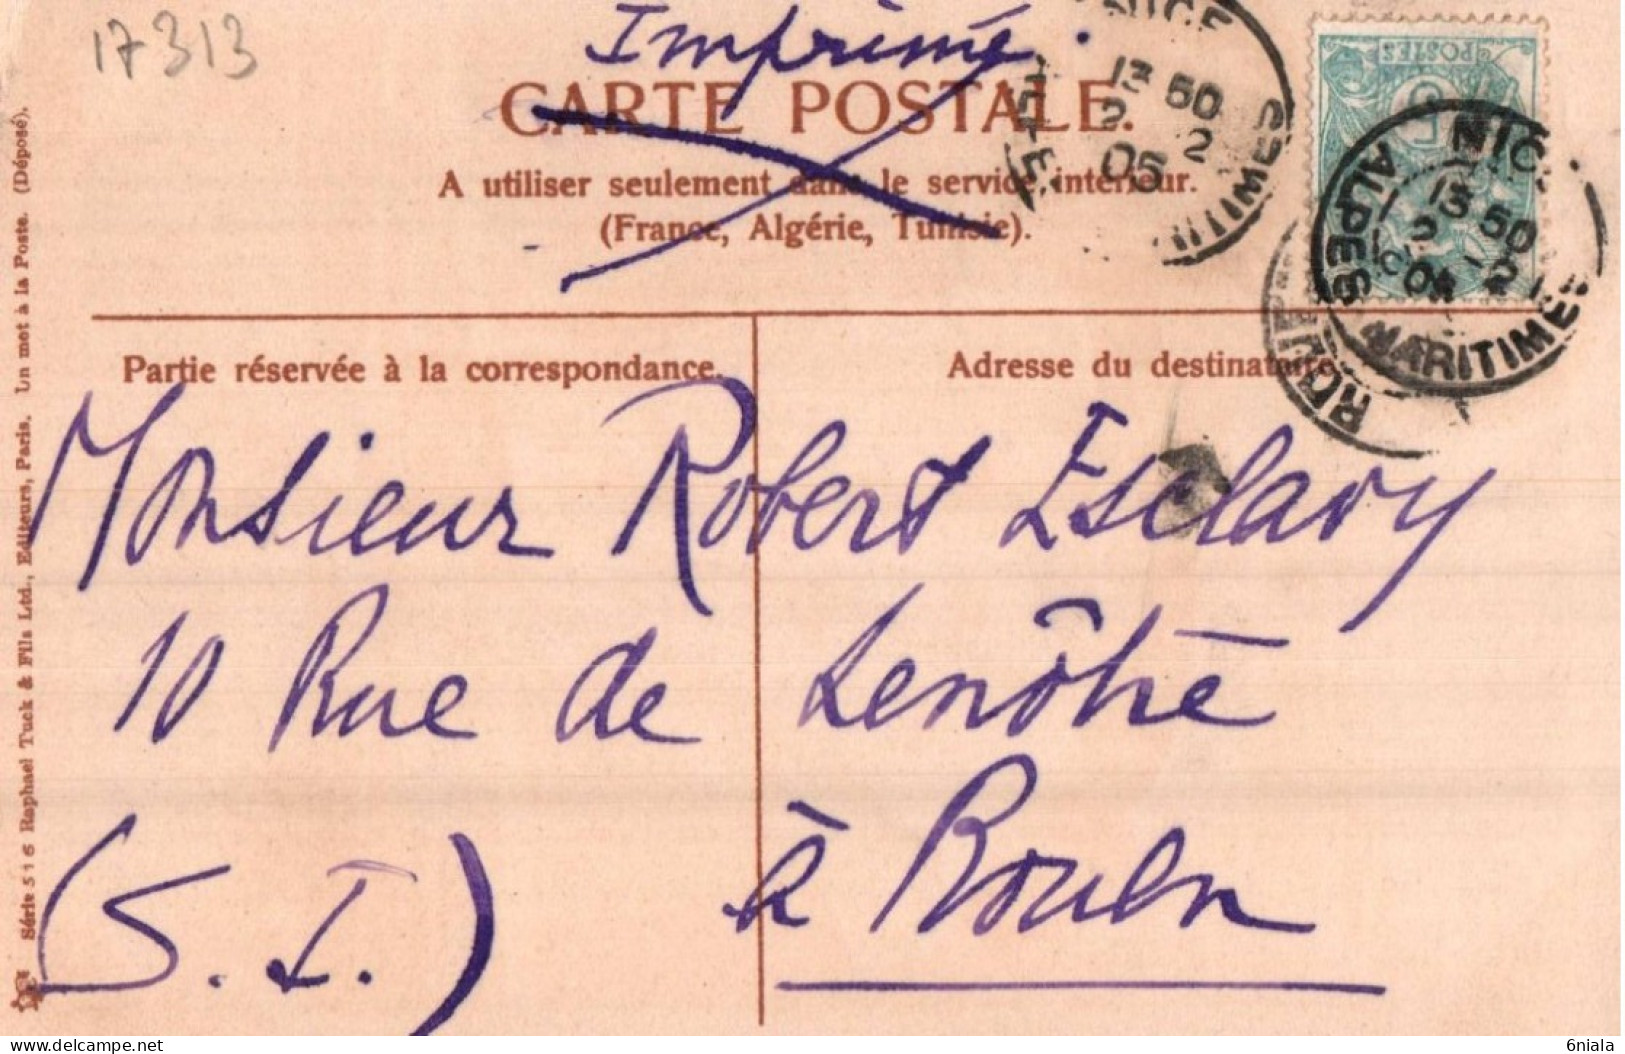 17313
Imprimé.
CARTE POSTALE.
A utiliser seulement dans le service intérieur.
(France, Algérie, Tunisie).
NICE
13 50
2 2
05
POSTES
5
NIC
ALPES MARITIMES
13 50
2 2
05
Partie réservée à la correspondance.
Adresse du destinataire.
Monsieur Robert Esclavy
10 Rue de Lenôtre
(S. I.) à Rouen
Série 516 Raphael Tuck & Fils Ltd., Editeurs, Paris. Un met à la Poste. (Déposé).
delcampe.net
6niala